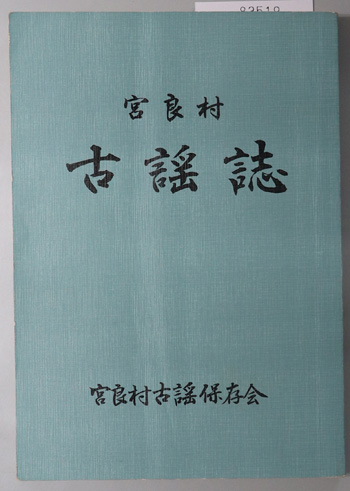 宮良村
古謡誌
宮良村古謡保存会